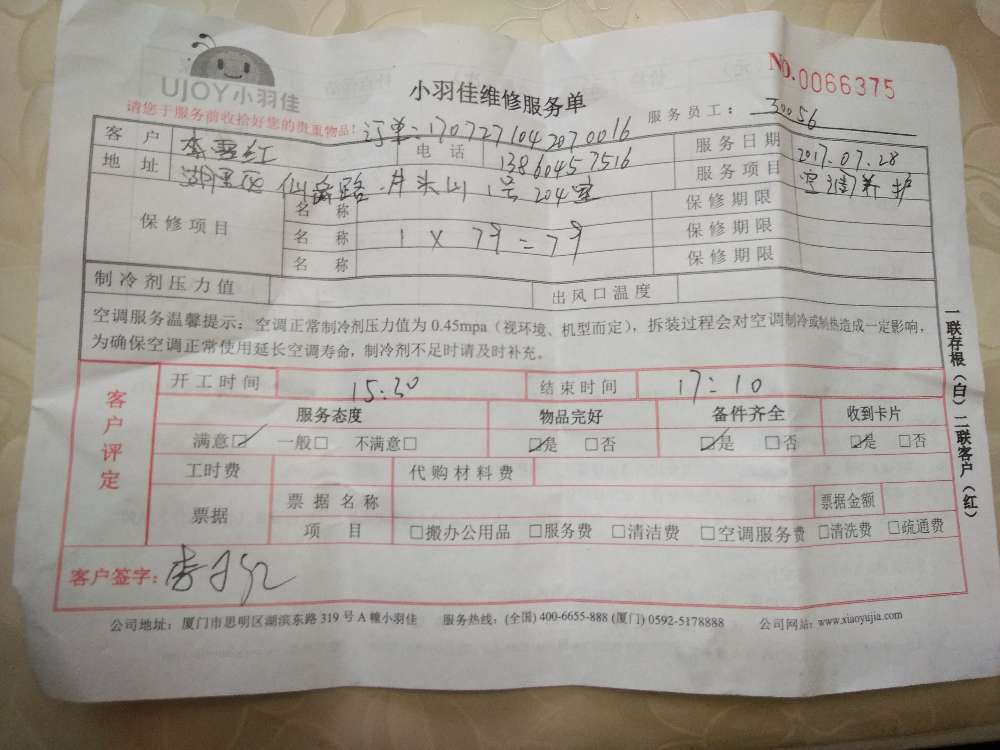 UJOY小羽佳
小羽佳维修服务单
No.0066375
请您于服务前收拾好您的贵重物品!
订单:1707271042070016
服务员工: 30056
客户 李雪红 电话 13860457516 服务日期 2017.07.28
地址 湖里区仙岳路井头山1号204室 服务项目 空调养护
保修项目 名称 保修期限
名称 1 X 79 = 79 保修期限
名称 保修期限
制冷剂压力值 出风口温度
空调服务温馨提示：空调正常制冷剂压力值为 0.45mpa（视环境、机型而定），拆装过程会对空调制冷或制热造成一定影响，
为确保空调正常使用延长空调寿命，制冷剂不足时请及时补充。
客户评定
开工时间 15:30 结束时间 17:10
服务态度 物品完好 备件齐全 收到卡片
满意☑ 一般□ 不满意□ ☑是 □否 ☑是 □否 ☑是 □否
工时费 代购材料费
票据 票据名称 票据金额
项目 □搬办公用品 □服务费 □清洁费 □空调服务费 □清洗费 □疏通费
客户签字:
公司地址：厦门市思明区湖滨东路 319 号 A 幢小羽佳 服务热线：(全国) 400-6655-888 (厦门) 0592-5178888 公司网站: www.xiaoyujia.com
一联存根（白）二联客户（红）